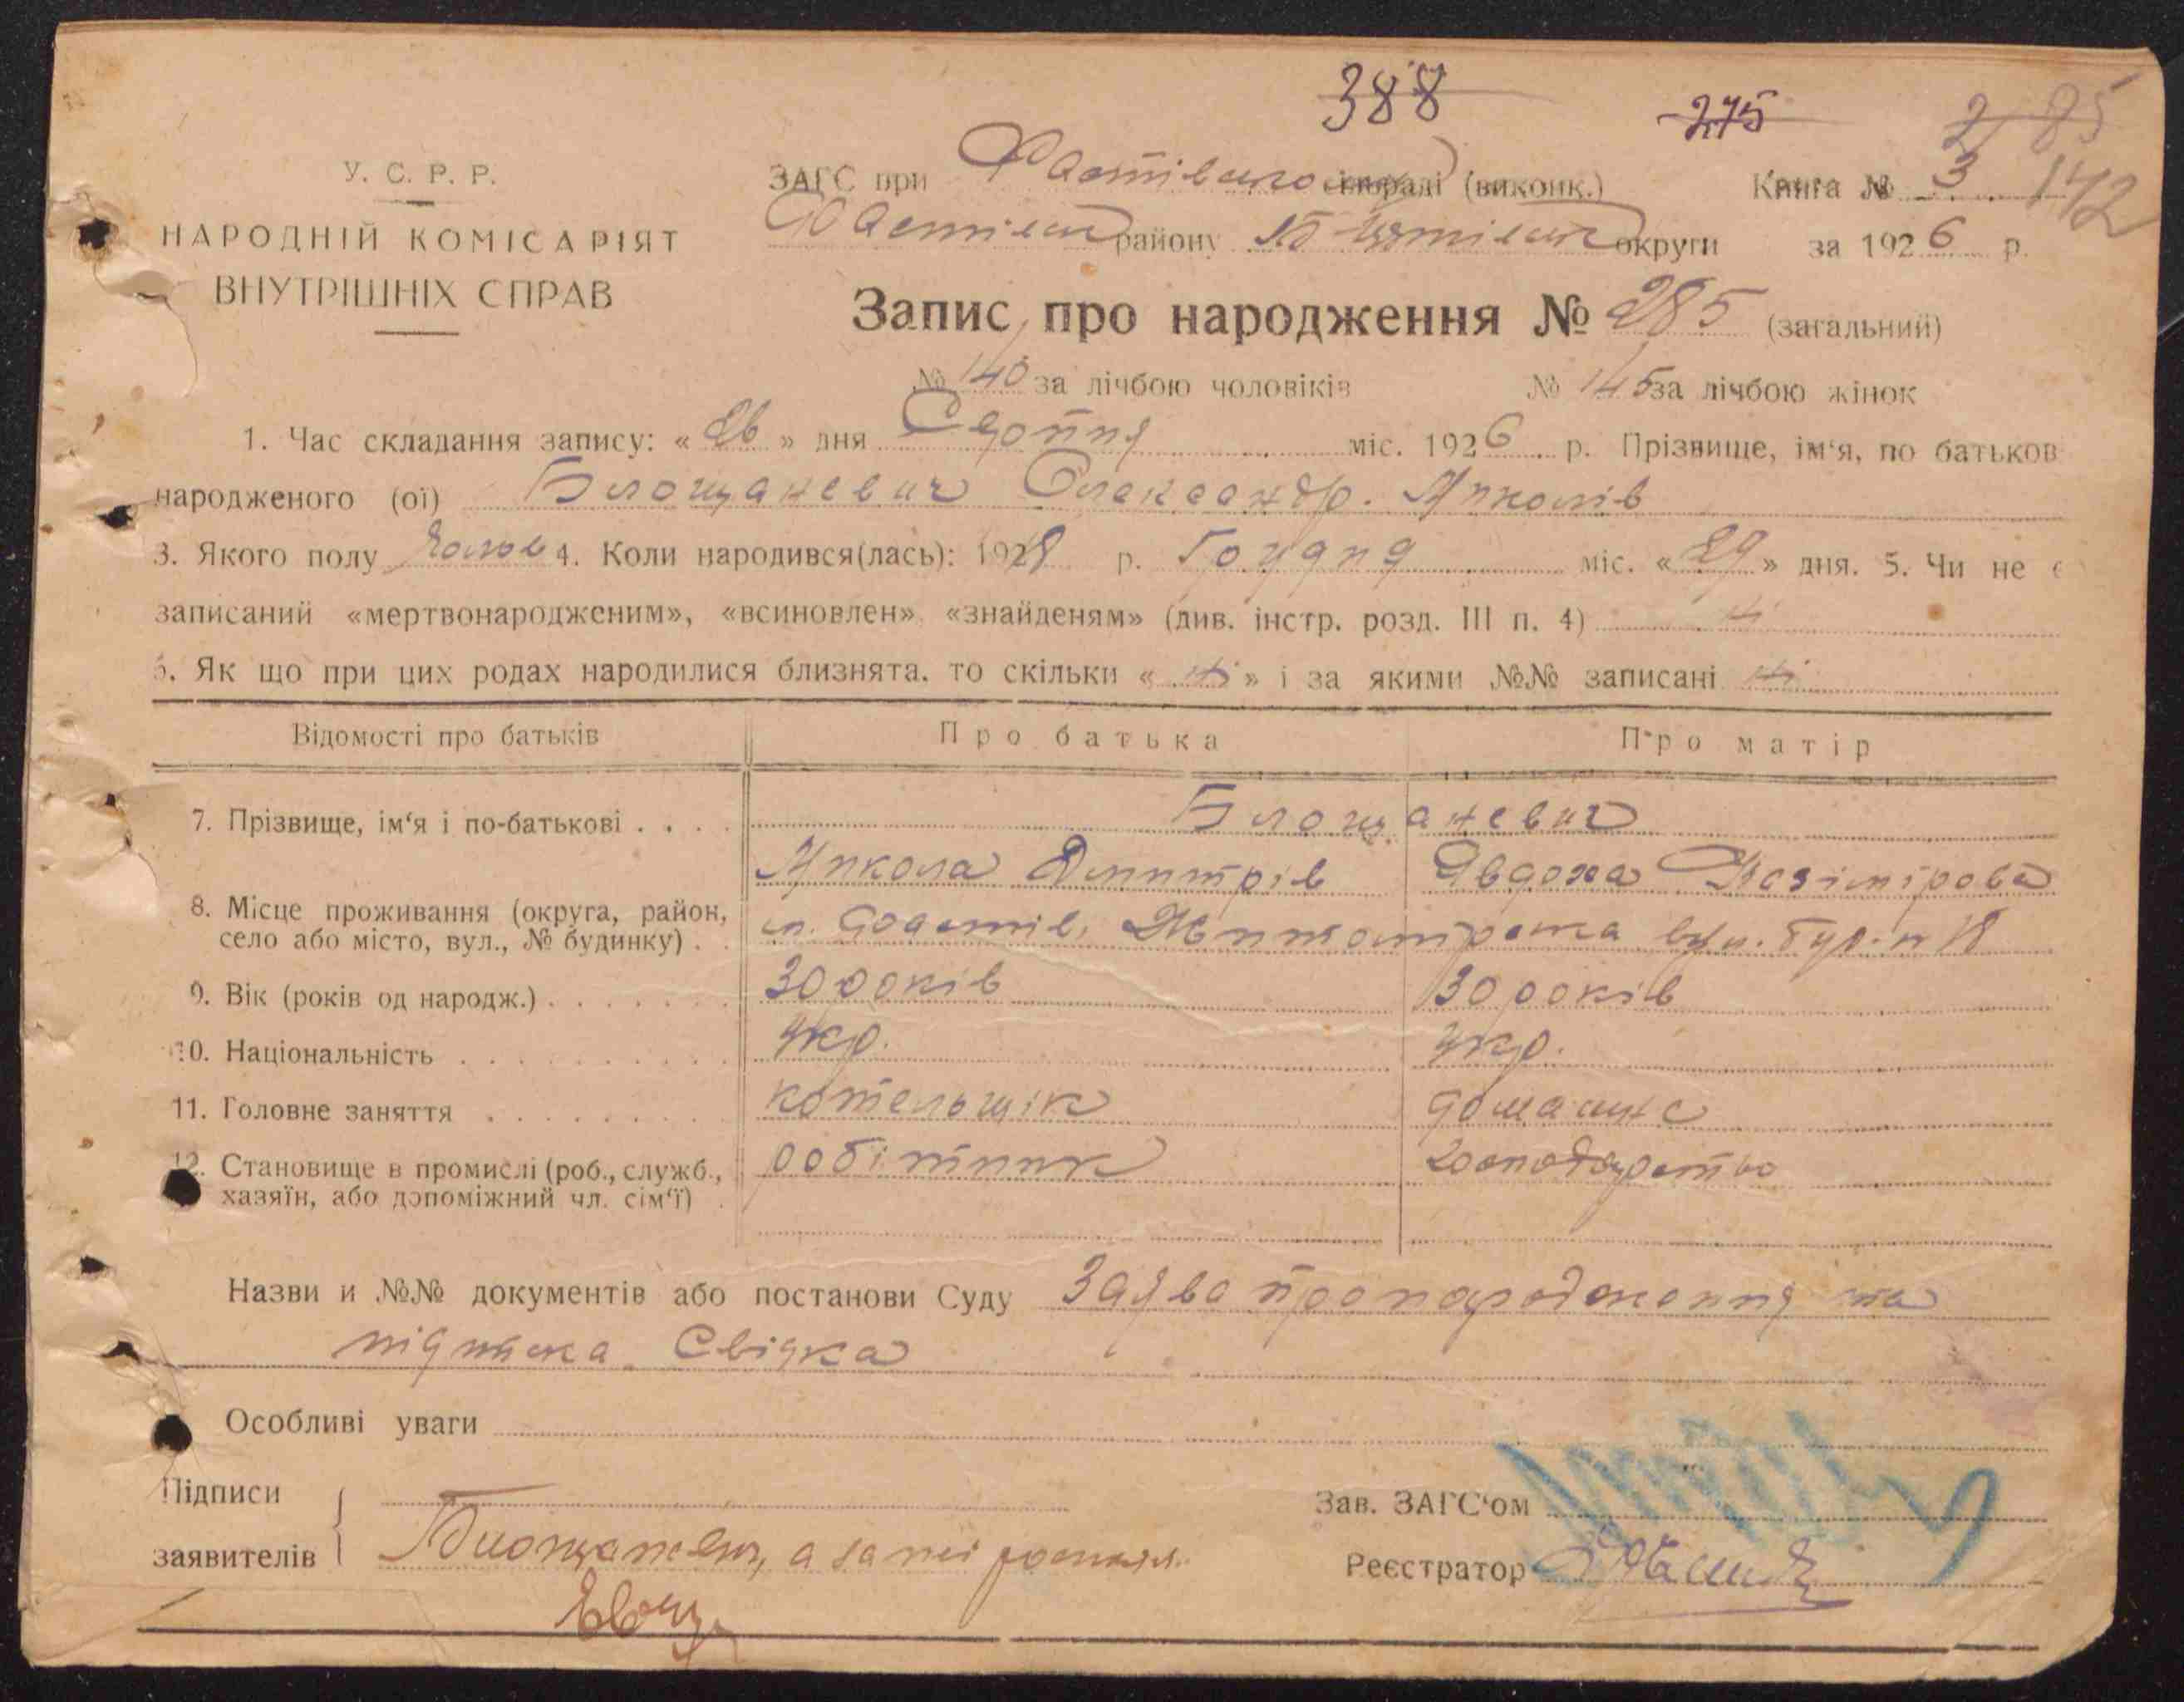 388
275
2 85
У. С. Р. Р.
НАРОДНІЙ КОМІСАРІЯТ
ВНУТРІШНІХ СПРАВ
ЗАГС при Фастівсько сільраді (виконк.) Книга № 3 142
району округи за 1926 р.
Запис про народження № 285 (загальний)
№ 140 за лічбою чоловіків № 145 за лічбою жінок
1. Час складання запису: « 26 » дня Серпня міс. 1926 р. Прізвище, ім'я, по батьков
народженого (ої) Блощаневич Олександр. Миколів
3. Якого полу чолов 4. Коли народився(лась): 192 р. Грудня міс. « 29 » дня. 5. Чи не є
записаний «мертвонародженим», «всиновлен» «знайденям» (див. інстр. розд. III п. 4) ні
6. Як що при цих родах народилися близнята, то скільки « ні » і за якими №№ записані ні
Відомості про батьків Про батька Про матір
7. Прізвище, ім'я і по-батькові . . . . Блощаневич
Микола Дмитрів Явдоха Казімірова
8. Місце проживання (округа, район,
село або місто, вул., № будинку) . . м. Фастів, Житомірська вул. буд. н 18
9. Вік (років од народж.) . . . . . . . 30 років 30 років
10. Національність . . . . . . . . . . укр. укр.
11. Головне заняття . . . . . . . . котельщік домашнє
12. Становище в промислі (роб., служб., робітник господарство
хазяїн, або допоміжний чл. сім'ї) .
Назви и №№ документів або постанови Суду Заява про народження та
підписка Свідка
Особливі уваги
Підписи
заявителів а за неї
Зав. ЗАГС'ом
Реєстратор